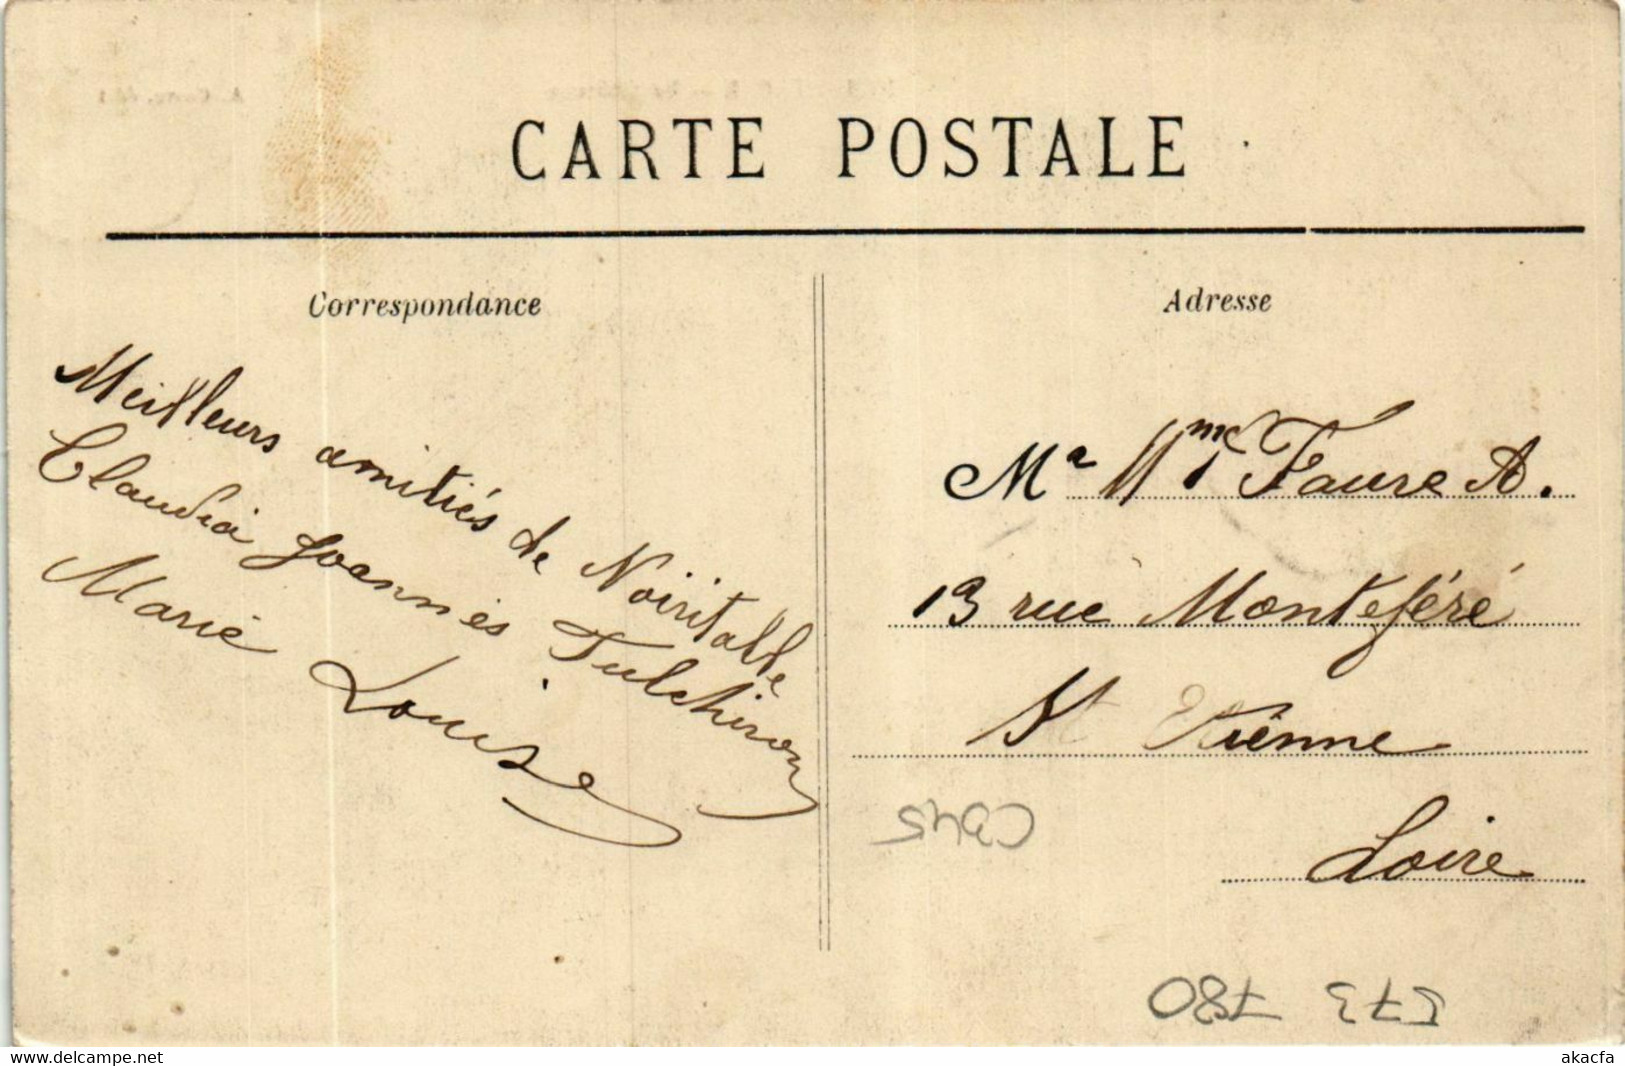 CARTE POSTALE
Correspondance
Adresse
Meilleurs amitiés de Noirétable
Claudia Joannès Fulchiron
Marie Louise
Mr Mme Faure A.
13 rue Monteféré
St Etienne
Loire
CD45
E73 780
www.delcampe.net
akacfa